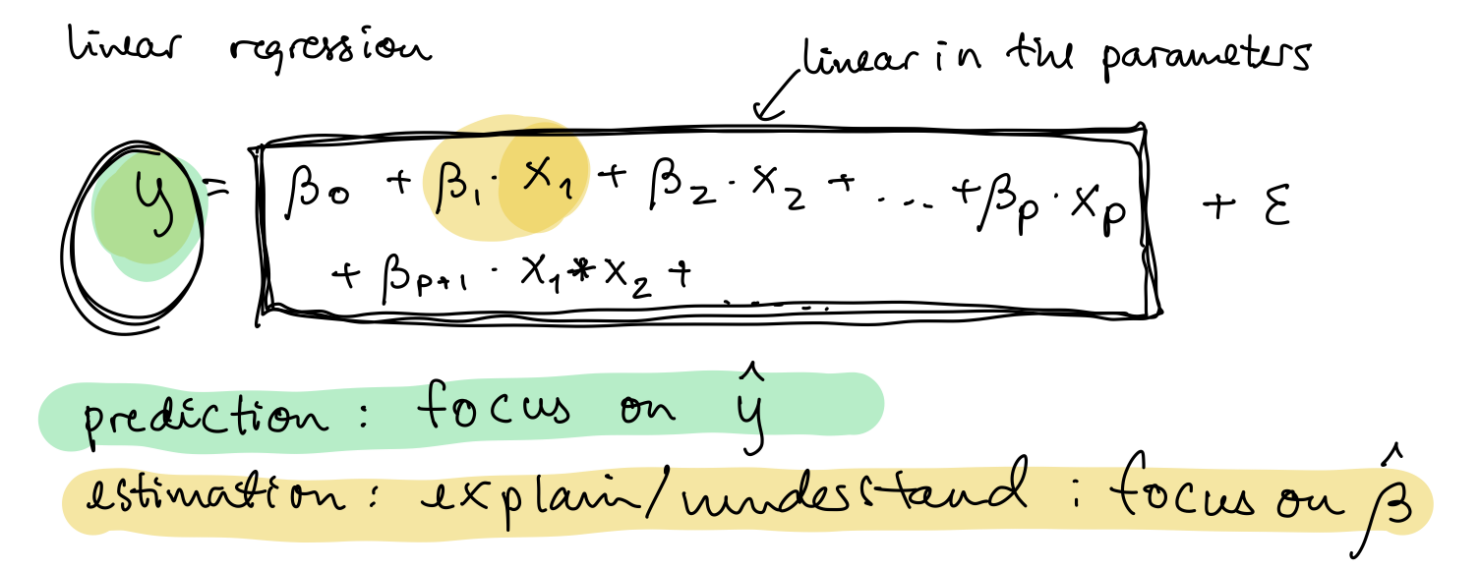 linear regression
linear in the parameters
y = β₀ + β₁ · x₁ + β₂ · x₂ + ... + βₚ · xₚ + ε
+ βₚ₊₁ · x₁*x₂ + ......
prediction : focus on ŷ
estimation : explain/understand : focus on β̂